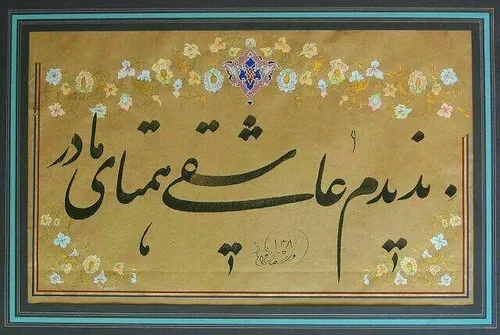 ندیدم عاشقی همتای مادر